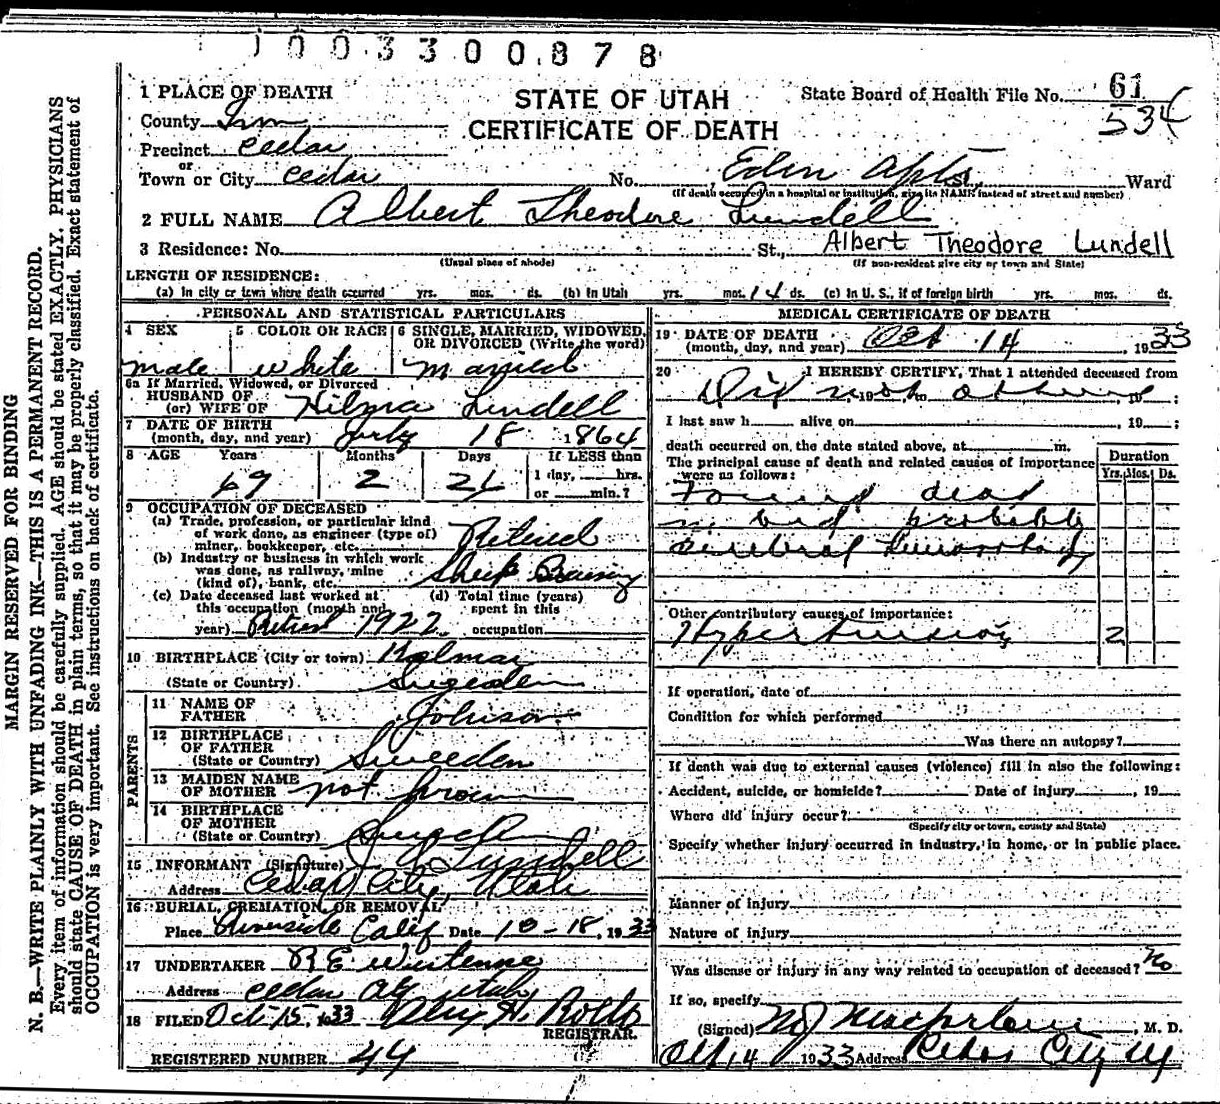 1003300878
1 PLACE OF DEATH
STATE OF UTAH
State Board of Health File No. 61
County Iron
CERTIFICATE OF DEATH
534
Precinct Cedar
or
Town or City Cedar No. Edin Apts St., Ward
(If death occurred in a hospital or institution, give its NAME instead of street and number)
2 FULL NAME Albert Theodore Lundell
3 Residence: No. St., Albert Theodore Lundell
(Usual place of abode) (If non-resident give city or town and State)
LENGTH OF RESIDENCE:
(a) In city or town where death occurred yrs. mos. ds. (b) In Utah yrs. mos. 14 ds. (c) In U. S., if of foreign birth yrs. mos. ds.
PERSONAL AND STATISTICAL PARTICULARS
4 SEX 5 COLOR OR RACE 6 SINGLE, MARRIED, WIDOWED, OR DIVORCED (Write the word)
male white married
6a If Married, Widowed, or Divorced
HUSBAND OF
(or) WIFE OF Hilma Lundell
7 DATE OF BIRTH
(month, day, and year) July 18 1864
8 AGE Years Months Days If LESS than
69 2 26 1 day, hrs.
or min.?
9 OCCUPATION OF DECEASED
(a) Trade, profession, or particular kind
of work done, as engineer (type of)
miner, bookkeeper, etc. Retired
(b) Industry or business in which work
was done, as railway, mine
(kind of), bank, etc. Sheep
(c) Date deceased last worked at
this occupation (month and
year) Retired 1922
(d) Total time (years)
spent in this
occupation
10 BIRTHPLACE (City or town) Kalmar
(State or Country) Sweden
PARENTS
11 NAME OF
FATHER Johnson
12 BIRTHPLACE
OF FATHER
(State or Country) Sweeden
13 MAIDEN NAME
OF MOTHER not known
14 BIRTHPLACE
OF MOTHER
(State or Country)
15 INFORMANT (Signature) Lundell
Address Cedar City, Utah
16 BURIAL, CREMATION, OR REMOVAL
Place Riverside Calif Date 10-18, 1933
17 UNDERTAKER
Address Cedar City Utah
18 FILED Oct 15, 1933
REGISTRAR.
REGISTERED NUMBER 44
MEDICAL CERTIFICATE OF DEATH
19 DATE OF DEATH
(month, day, and year) Oct 14 1933
20 I HEREBY CERTIFY, That I attended deceased from
Did not attend , 19 ;
I last saw h alive on , 19 ;
death occurred on the date stated above, at m.
The principal cause of death and related causes of importance
were as follows:
Duration
Yrs. Mos. Ds.
Found dead
in bed probably
cerebral hemorrhage
Other contributory causes of importance:
Hypertension 2
If operation, date of
Condition for which performed
Was there an autopsy?
If death was due to external causes (violence) fill in also the following:
Accident, suicide, or homicide? Date of injury , 19
Where did injury occur?
(Specify city or town, county and State)
Specify whether injury occurred in industry, in home, or in public place.
Manner of injury
Nature of injury
Was disease or injury in any way related to occupation of deceased? No
If so, specify
(Signed) M J Macfarlane, M. D.
Oct 14 1933 Address Cedar City Ut
MARGIN RESERVED FOR BINDING
N. B.—WRITE PLAINLY WITH UNFADING INK—THIS IS A PERMANENT RECORD.
Every item of information should be carefully supplied. AGE should be stated EXACTLY. PHYSICIANS
should state CAUSE OF DEATH in plain terms, so that it may be properly classified. Exact statement of
OCCUPATION is very important. See instructions on back of certificate.